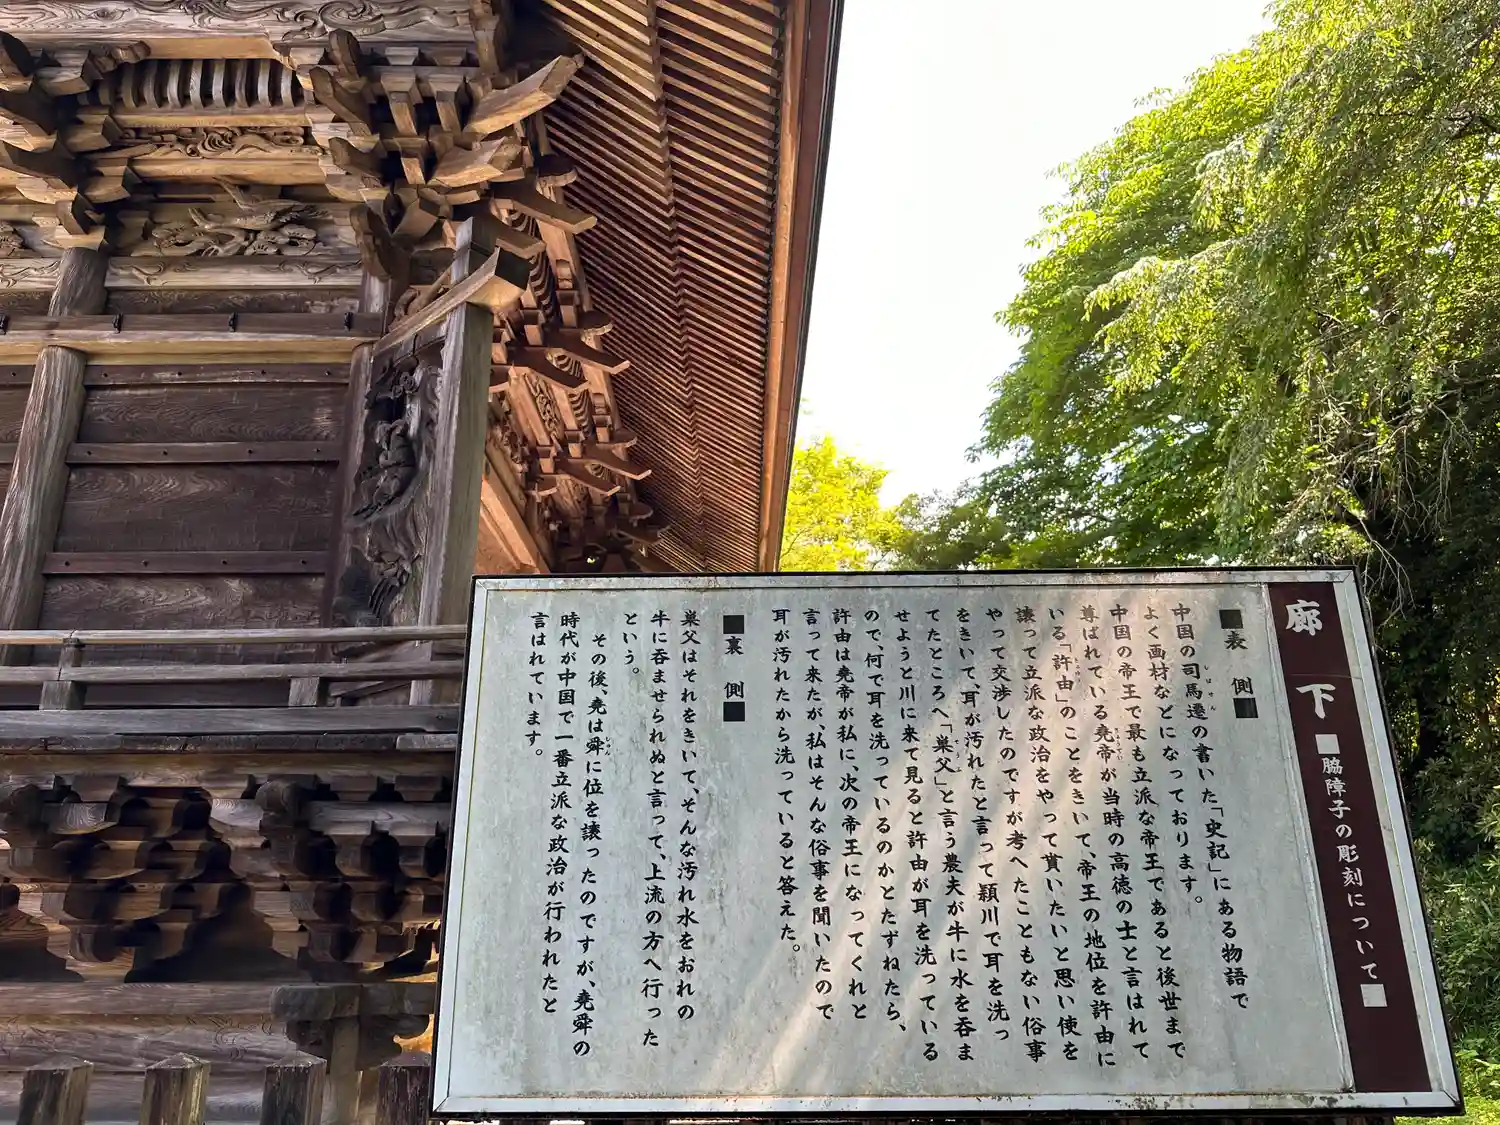 廊下■脇障子の彫刻について■
■表側■
中国の司馬遷の書いた「史記」にある物語で
よく画材などになっております。
中国の帝王で最も立派な帝王であると後世まで
尊ばれている堯帝が当時の高徳の士と言はれて
いる「許由」のことをきいて、帝王の地位を許由に
譲って立派な政治をやって貰いたいと思い使を
やって交渉したのですが考へたこともない俗事
をきいて、耳が汚れたと言って穎川で耳を洗っ
てたところへ「巣父」と言う農夫が牛に水を呑ま
せようと川に来て見ると許由が耳を洗っている
ので、何で耳を洗っているのかとたずねたら、
許由は堯帝が私に、次の帝王になってくれと
言って来たが私はそんな俗事を聞いたので
耳が汚れたから洗っていると答えた。
■裏側■
巣父はそれをきいて、そんな汚れ水をおれの
牛に呑ませられぬと言って、上流の方へ行った
という。
その後、堯は舜に位を譲ったのですが、堯舜の
時代が中国で一番立派な政治が行われたと
言はれています。